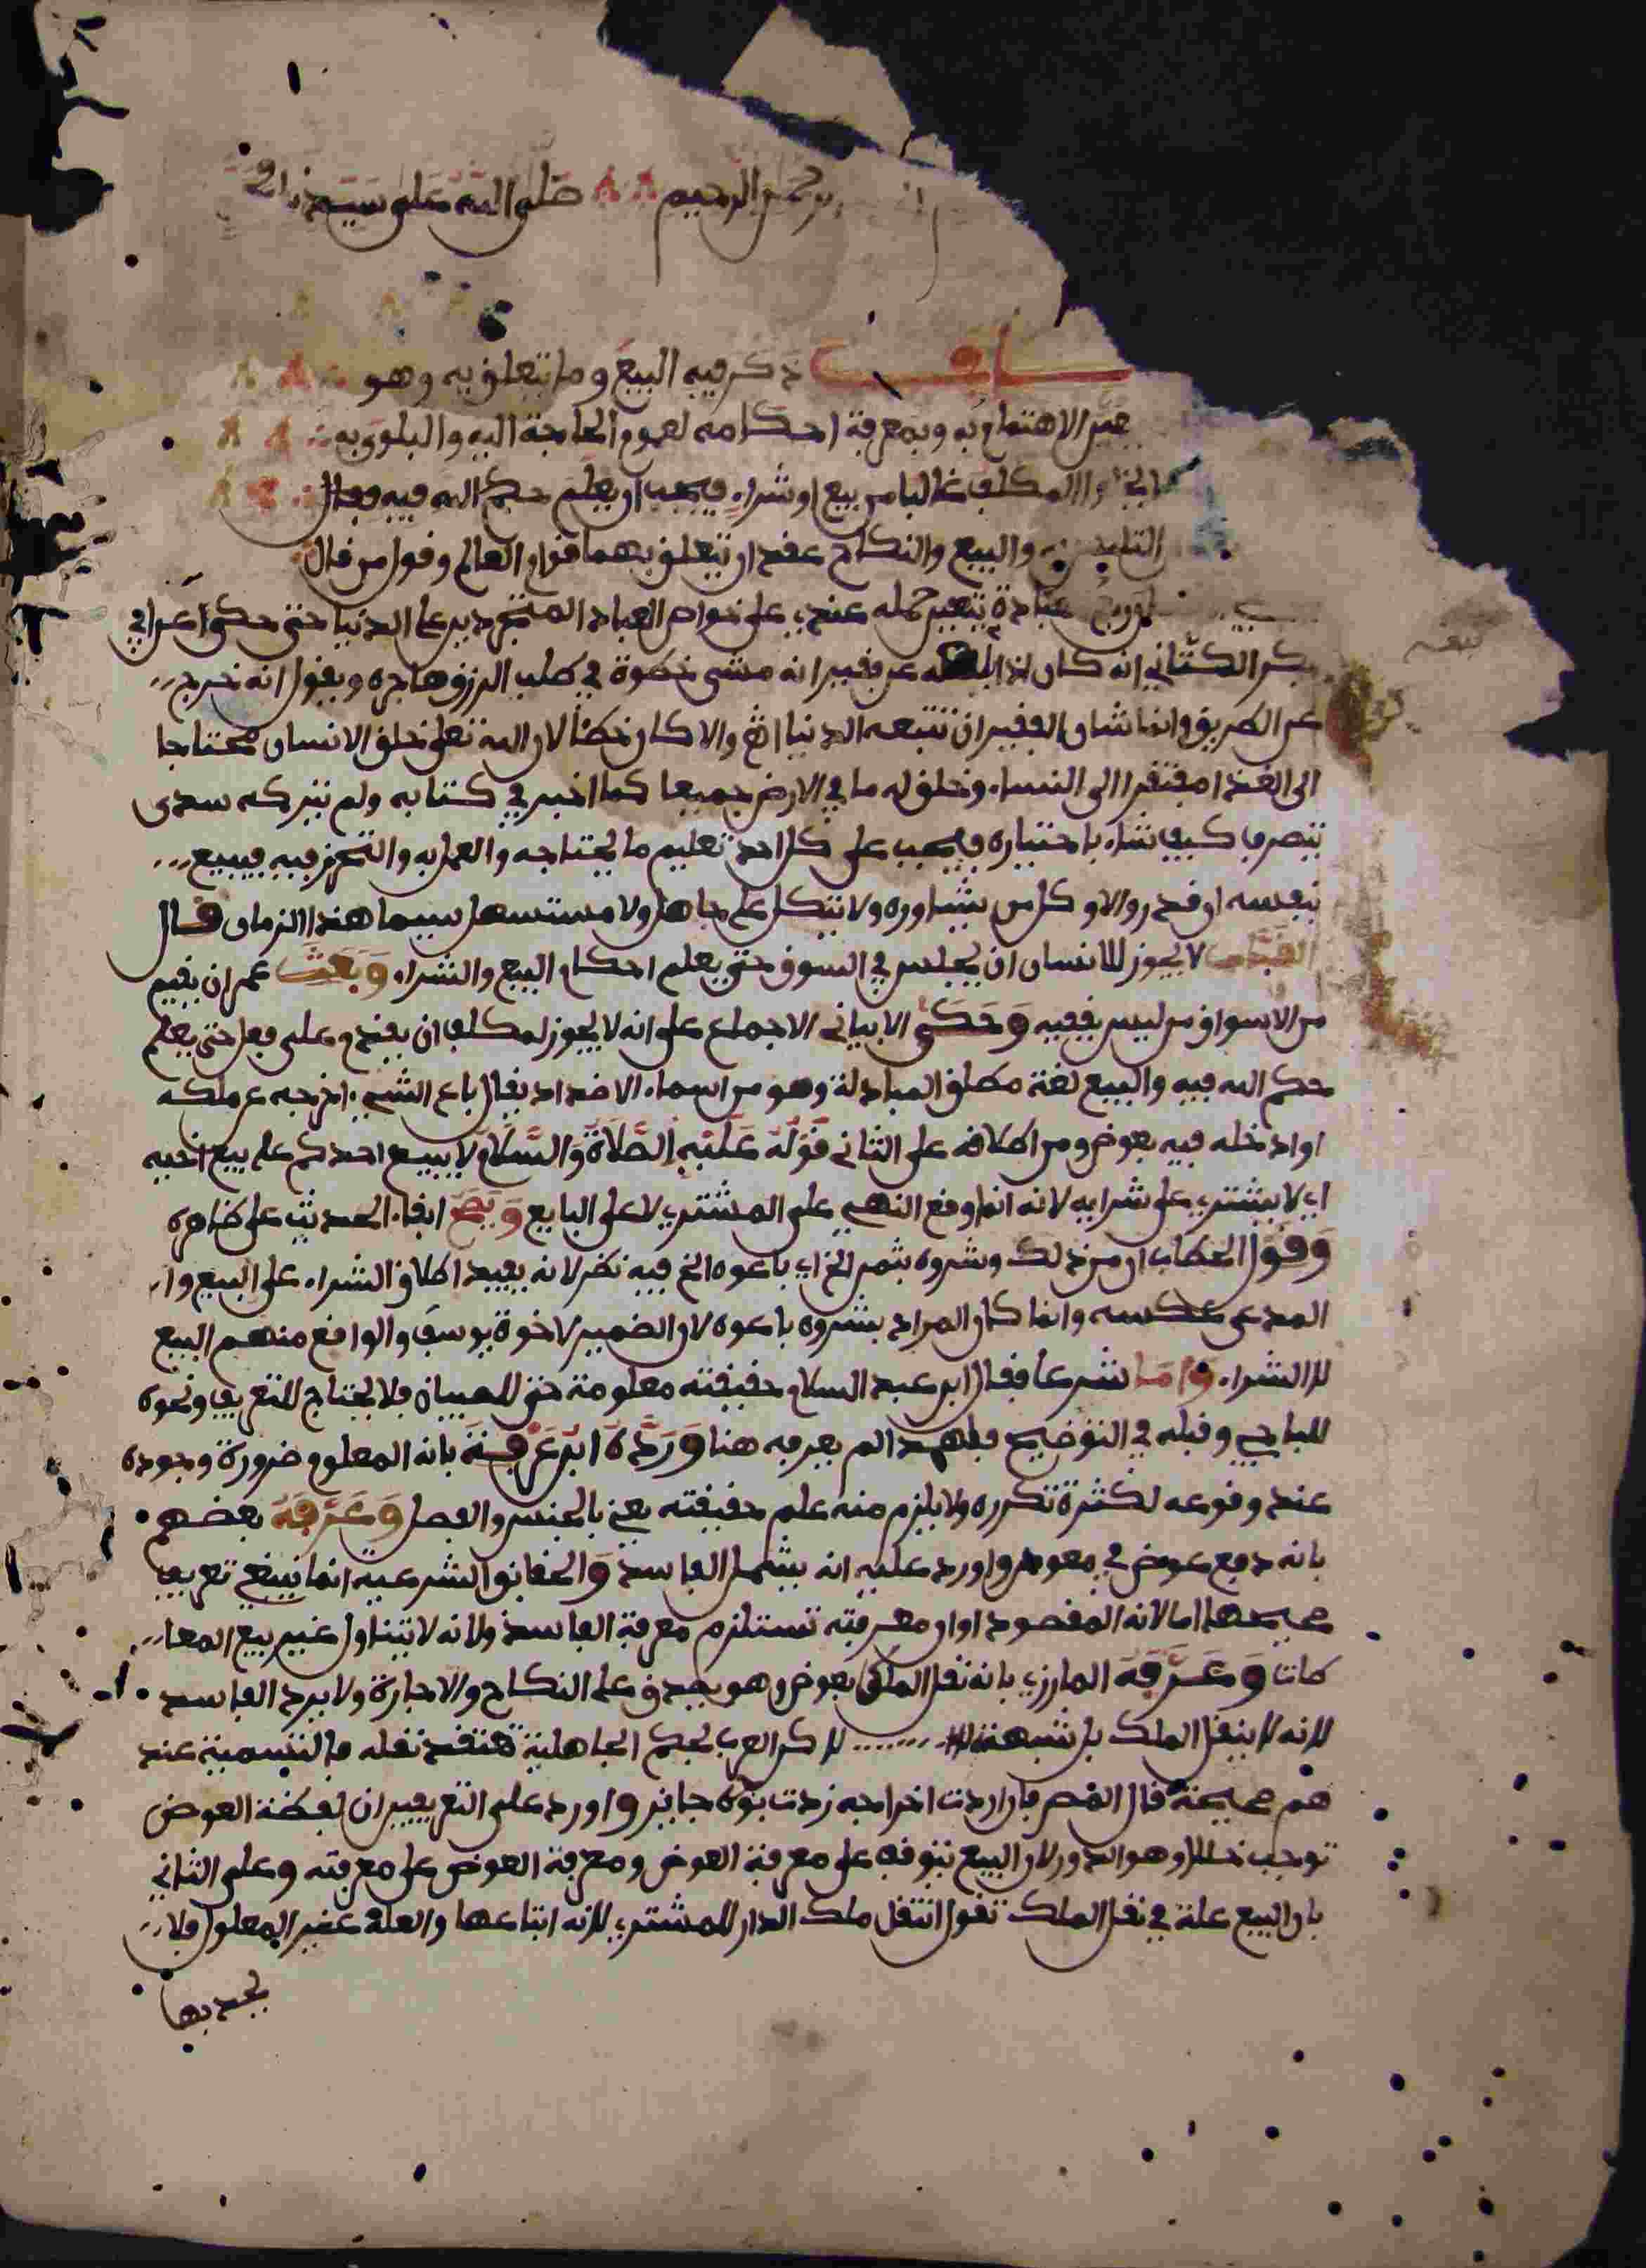 الرحمن الرحيم صلى الله على سيدنا
باب ذكر فيه البيع وما يتعلق به وهو
يتعين الاهتمام به وبمعرفة احكامه لعموم الحاجة اليه والبلوى به
المكلف غالبا من بيع او شراء فيجب ان يعلم حكم الله فيه فقال
والبيع والنكاح عقدان يتعلق بهما قوام العالم وقول من قال
عبادة يتعين حمله عندي على خواص العباد المتجردين على الدنيا حتى حكى اعرابي
بكر الكتاني انه كان اذا بلغه عن فقير انه مشى خطوة في طلب الرزق هاجره ويقول انه خرج
عن الطريق وانما شان الفقير ان تتبعه الدنيا والا كان خطأ لان الله تعلى خلق الانسان محتاجا
الى الغذا مفتقرا الى النساء وخلق له ما في الارض جميعا كما اخبر في كتابه ولم يتركه سدى
يتصرف كيف شاء باختياره فيجب على كل احد تعليم ما يحتاجه والعمل به والتحرز فيه فيبيع
بنفسه ان قدر والا وكل من يشاوره ولا يتكل على جاهل ولا متساهل سيما هذا الزمان قال
القباب لا يجوز للانسان ان يجلس في السوق حتى يعلم احكام البيع والشراء وبعث عمر ان يقيم
من الاسواق من ليس بفقيه وحكى الابياني الاجماع على انه لا يجوز لمكلف ان يقدم على فعل حتى يعلم
حكم الله فيه والبيع لغة مطلق المبادلة وهو من اسماء الاضداد يقال باع الشيء اخرجه عن ملكه
او ادخله فيه بعوض ومن اطلاقه على الثاني قوله عليه الصلاة والسلام لا يبيع احدكم على بيع اخيه
اي لا يشتري على شرايه لانه انما وقع النهي على المشتري لا على البايع ويصح ابقاء الحديث على ظاهره
وقول الحطاب ان من ذلك وشروه بثمن الخ اي باعوه الخ فيه نظر لانه يفيد اطلاق الشراء على البيع وا
المدعى عكسه وانما كان المراد بشروه باعوه لان الضمير لاخوة يوسف والواقع منهم البيع
لا الشراء واما شرعا فقال ابن عبد السلام حقيقته معلومة حتى للصبيان فلا يحتاج للتعريف ونحوه
للباجي وقبله في التوضيح فلهذا لم يعرفه هنا ورده ابن عرفة بانه المعلوم ضرورة وجوده
عند وقوعه لكثرة تكرره ولا يلزم منه علم حقيقته يعني بالجنس والفصل وعرفه بعضهم
بانه دفع عوض في معوض واورد عليه انه يشمل الفاسد والحقائق الشرعية انما ينبغي تعريف
صحيحها اما لانه المقصود او ان معرفته تستلزم معرفة الفاسد ولانه لا يتناول غير بيع المعا
طات وعرفه المازري بانه نقل الملك بعوض وهو يصدق على النكاح والاجارة ولا يرد الفاسد
لانه لا ينقل الملك بل شبهة لا كن العرب لحكم الجاهلية تعتقد نقله فالتسمية عند
هم صحيحة قال المص فان اردت اخراجه زدت بوجه جايز واورد على التعريفين ان لفظة العوض
توجب خللا وهو الدور لان البيع يتوقف على معرفة العوض ومعرفة العوض على معرفته وعلى الثاني
بان البيع علة في نقل الملك تقول انتقل ملك الدار للمشتري لانه ابتاعها والعلة غير المعلول فلا
يحد بها